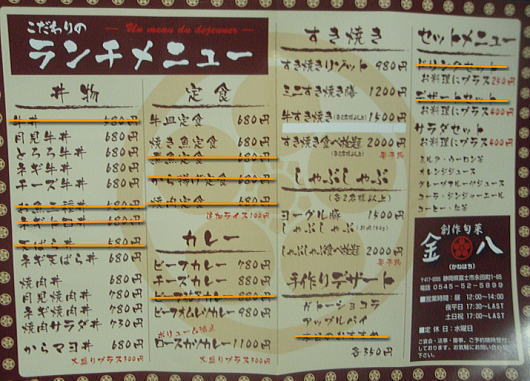 こだわりの
— Un menu du dejeuner —
ランチメニュー
丼物
牛丼 580円
月見牛丼 680円
とろろ牛丼 680円
ネギ牛丼 680円
チーズ牛丼 680円
680円
680円
そぼろ丼 580円
ネギそぼろ丼 680円
焼肉丼 680円
月見焼肉丼 780円
ネギ焼肉丼 780円
焼肉サラダ丼 730円
からマヨ丼 680円
大盛りプラス300円
定食
牛皿定食 680円
焼き魚定食 680円
煮魚定食 680円
から揚げ定食 680円
焼肉定食 680円
追加ライス100円
カレー
ビーフカレー 780円
チーズカレー 880円
880円
ビーフオムレツカレー 980円
ボリューム満点
ロースカツカレー 1100円
大盛りプラス300円
すき焼き
すき焼きリゾット 980円
ミニすき焼き膳 1200円
牛すき焼き 1500円
すき焼き食べ放題 2000円
しゃぶしゃぶ
(各2名様以上)
ヨーグル豚 1500円
しゃぶしゃぶ
しゃぶしゃぶ食べ放題 2000円
手作りデザート
ガトーショコラ
アップルパイ
各350円
セットメニュー
ドリンクセット
お料理にプラス250円
デザートセット
お料理にプラス400円
サラダセット
お料理にプラス400円
ミルク・ウーロン茶
オレンジジュース
グレープフルーツジュース
コーラ・ジンジャーエール
コーヒー・紅茶
創作旬菜
金八
(かねはち)
静岡県富士市永田町1-85
電話 0545-52-5899
■営業時間:昼 12:00〜14:00
夜平日 17:30〜LAST
土日祝 17:00〜LAST
■定休日:水曜日